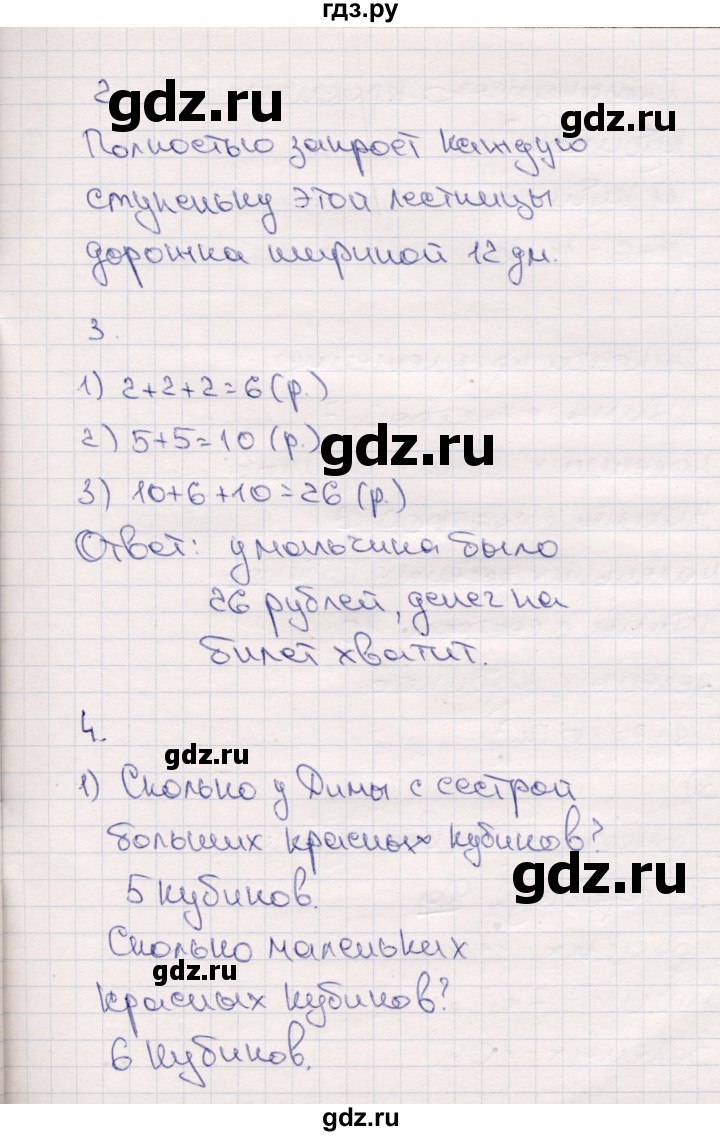 гдз.ру
2
gdz.ru
Полностью закроет каждую
ступеньку этой лестницы
дорожка шириной 12 дм.
3.
1) 2+2+2=6 (р.)
2) 5+5=10 (р.)
gdz.ru
3) 10+6+10=26 (р.)
Ответ: у мальчика было
26 рублей, денег на
билет хватит.
4.
gdz.ru
1) Сколько у Димы с сестрой
больших красных кубиков?
5 кубиков.
gdz.ru
Сколько маленьких
gdz.ru
красных кубиков?
6 кубиков.
gdz.ru